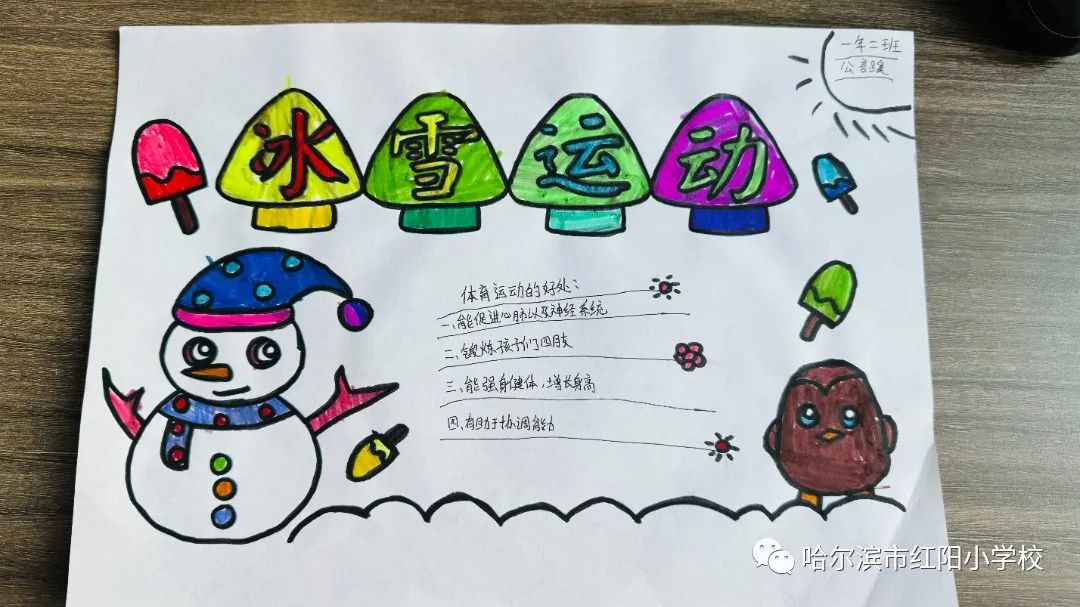 一年二班
冰雪运动
体育运动的好处:
一、能促进心肺以及神经系统
二、锻炼孩子们四肢
三、能强身健体,增长身高
四、有助于协调能力
哈尔滨市红阳小学校